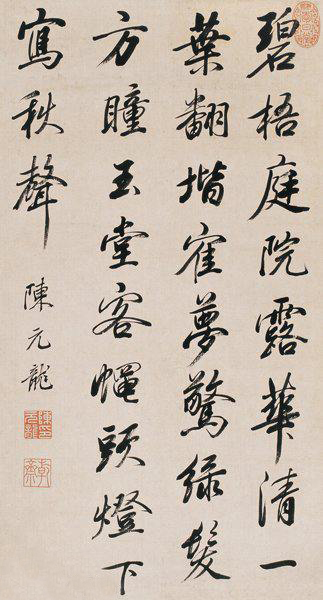 碧梧庭院露華清一
葉翻堦寉夢驚綠髮
方瞳玉堂客蠅頭燈下
寫秋聲
陳元龍
陳印元龍